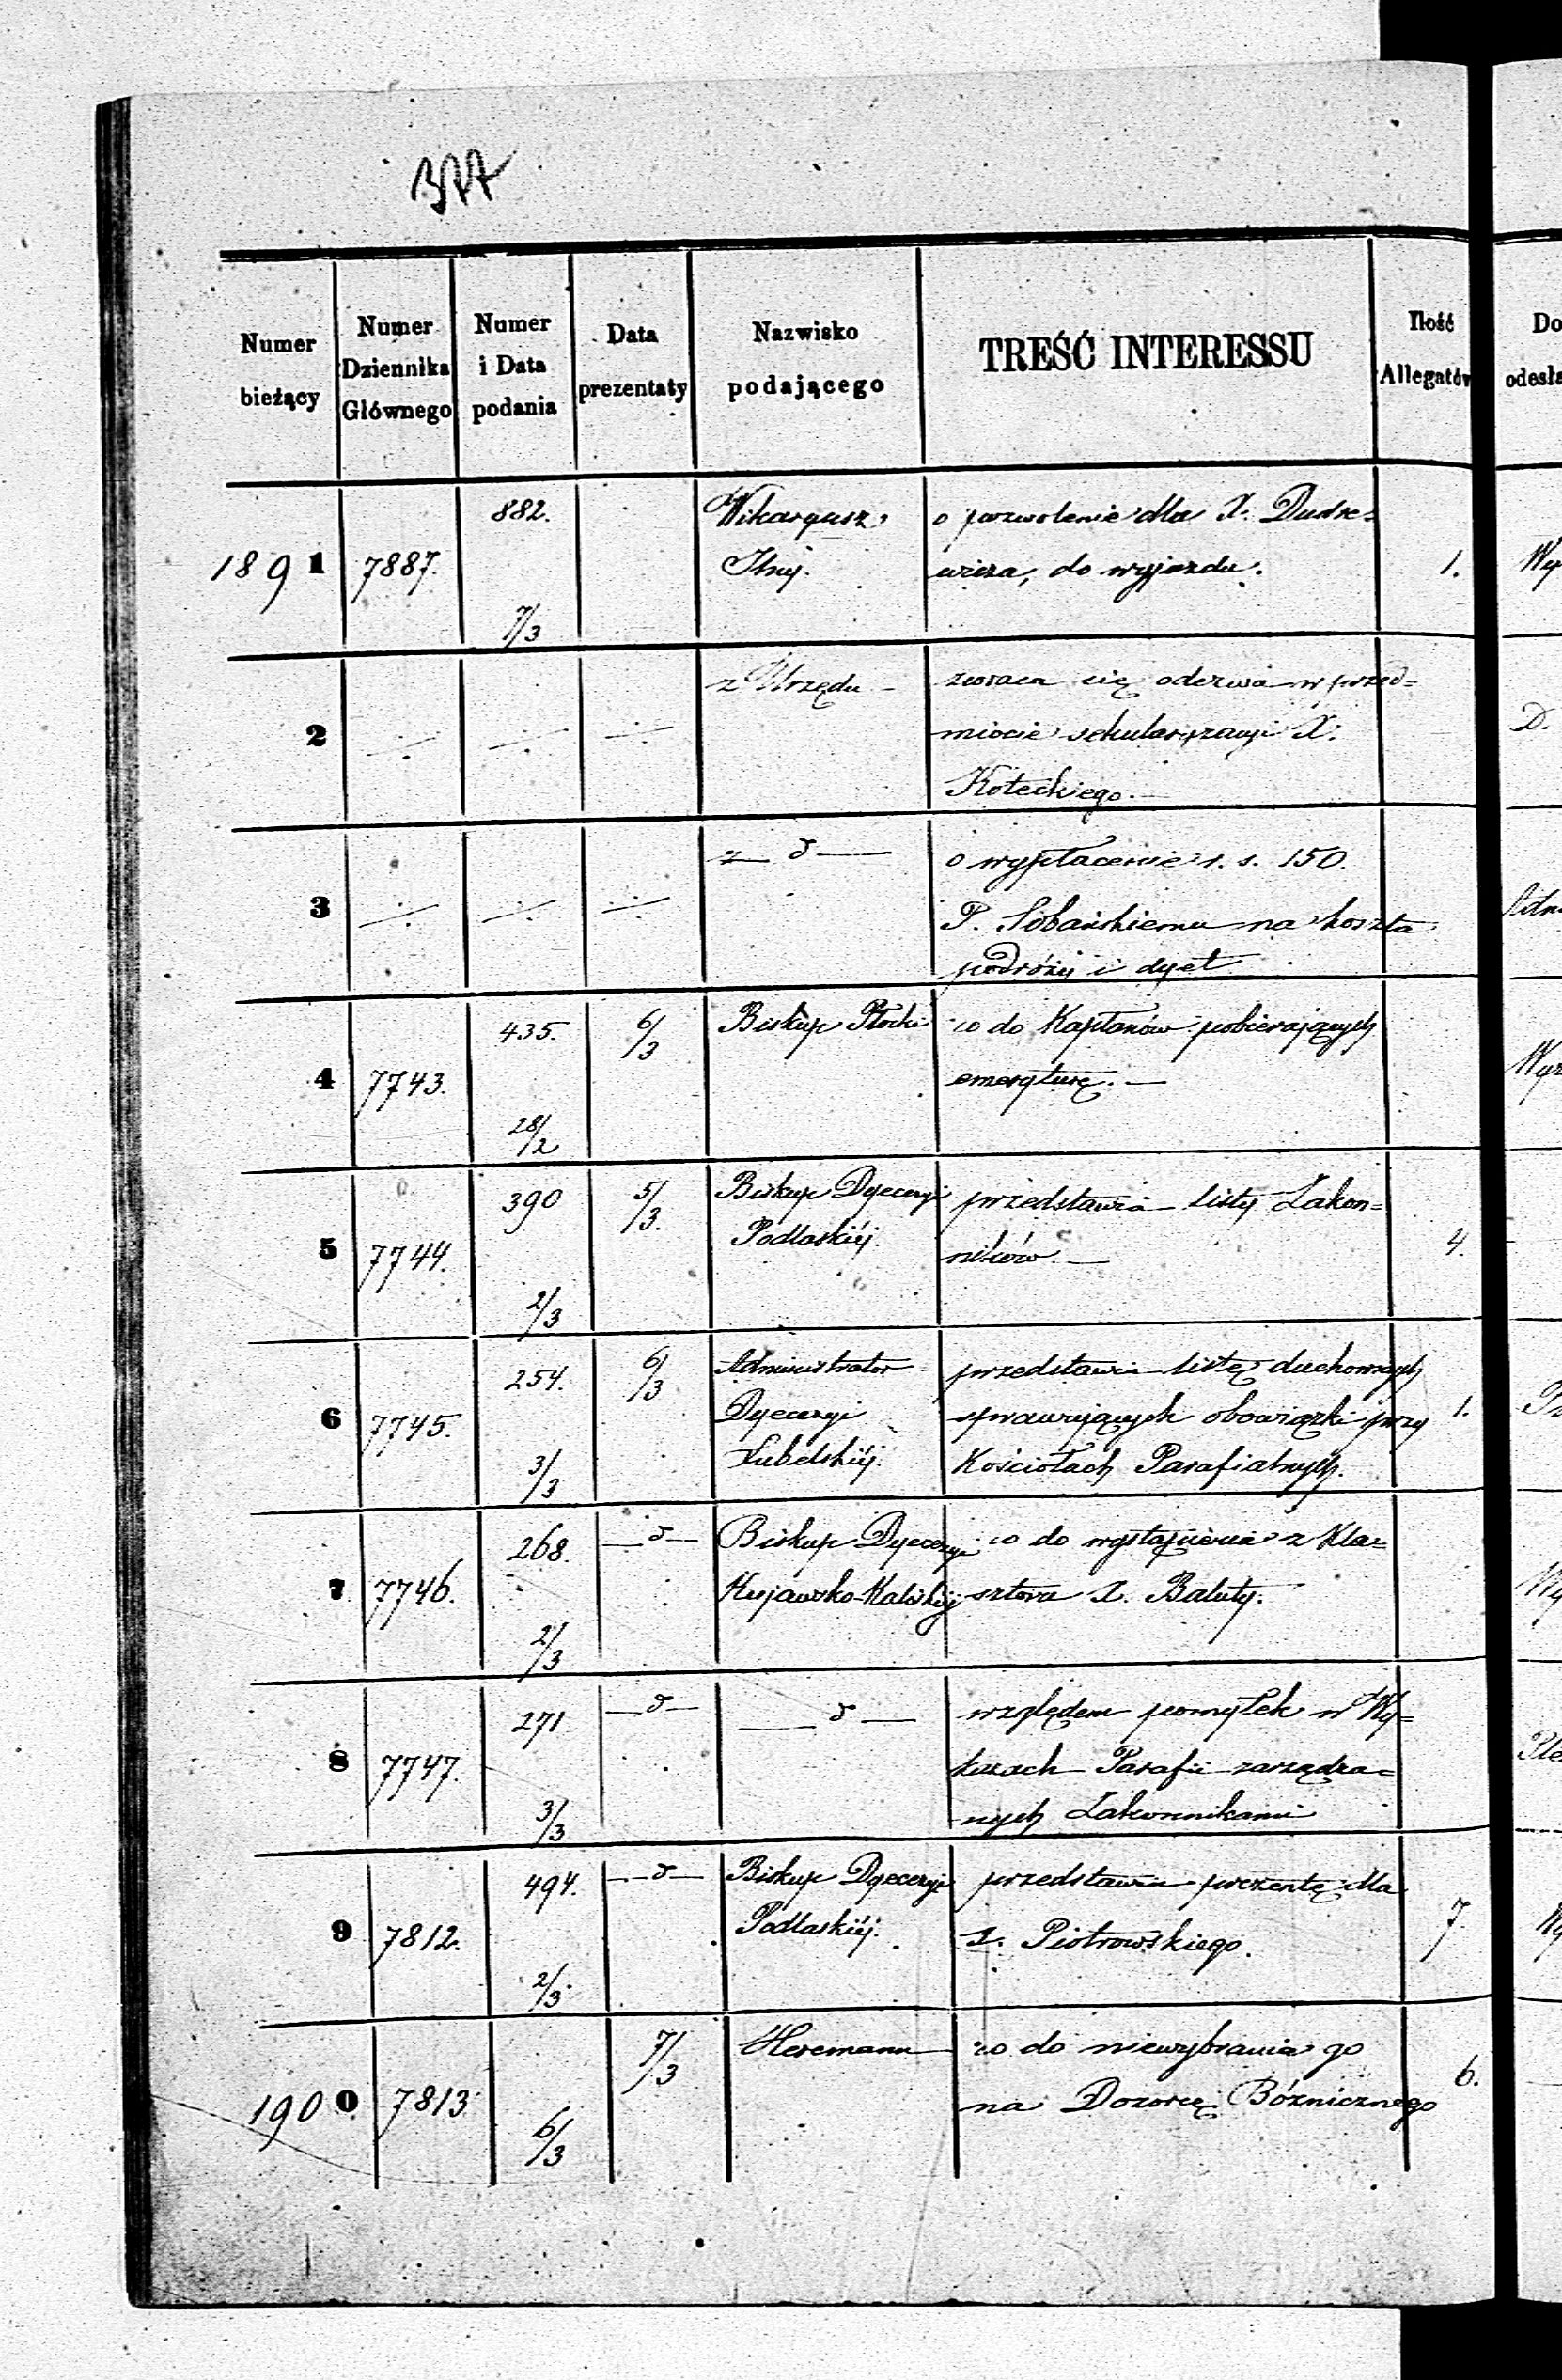 377
Numer bieżący | Numer Dziennika Głównego | Numer i Data podania | Data prezentaty | Nazwisko podającego | TREŚĆ INTERESSU | Ilość Allegatów | Do odesła
882. Wikaryusz o pozwolenie dla X. Dudre=
1891 7887. Jlny. wicza, do wyjazdu. 1. Wy
7/3
z Urzędu – zwraca się odezwa w przed=
2 ÷ ÷ ÷ miocie sekularyzacyi X. D.
Koteckiego. —
z — d — o wypłacenie r. s. 150.
3 ÷ ÷ ÷ P. Sobańskiemu na koszta Adm
podróży i dyet
435. 6/3 Biskup Płocki co do Kapłanów pobierających
4 7743. emeryturę. — Wyz
28/2
390 5/3. Biskup Dyecezyi przedstawia listy Zakon=
5 7744. Podlaskiéj. ników. — 4.
2/3
254. 6/3 Administrator przedstawia listę duchownych
6 7745. Dyecezyi sprawujących obowiązki przy 1.
3/3 Lubelskiéj. Kościołach Parafialnych.
268. — d — Biskup Dyecezyi co do wystąpienia z Kla=
7 7746. Kujawsko-Kaliskiéj sztoru X. Baluty. Wy
2/3
271 — d — — d — względem pomyłek w Wy=
8 7747. kazach Parafii zarządza=
3/3 nych Zakonnikami
494. — d — Biskup Dyecezyi przedstawia prezentę dla
9 7812. Podlaskiéj. X. Piotrowskiego. 7 Wy
2/3.
7/3 Heremann co do niewybrania go
1900 7813 na Dozorcę Bóżnicznego 6.
6/3